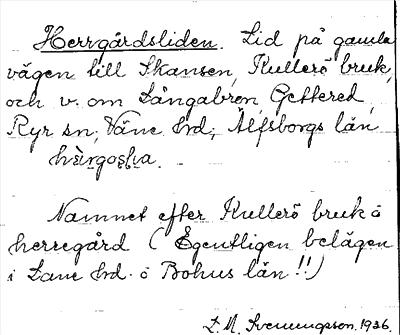 Herrgårdsliden. Lid på gamla
vägen till Skansen, Kullerö bruk,
och v. om Långabron, Gettered,
Ryr sn; Väne hrd; Älfsborgs län
Namnet efter Kullerö bruk ö
herregård (Egentligen belägen
i Lane hrd. ö Bohus län!!)
L. M. Svenungsson. 1936.